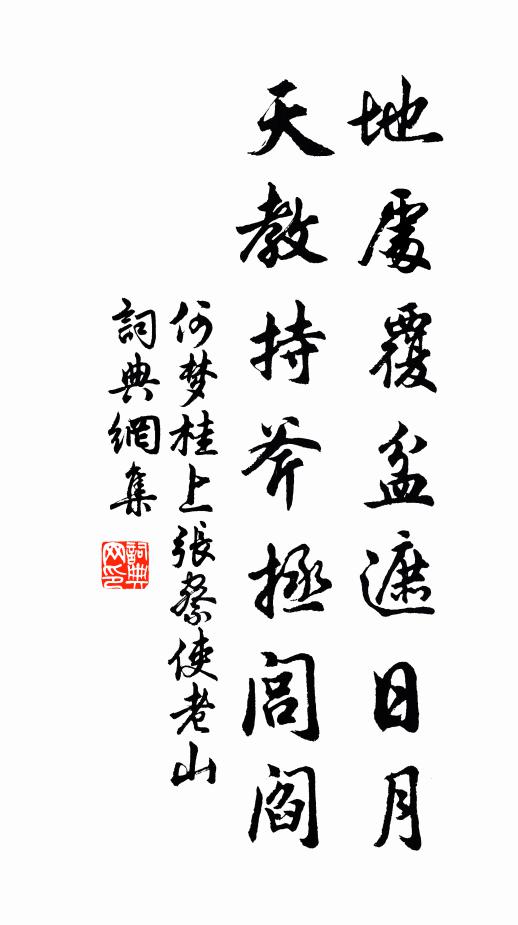 地處覆盆遮日月
天教持斧拯閭閻
何梦桂上張察使老山
詞典網集
詞典网印